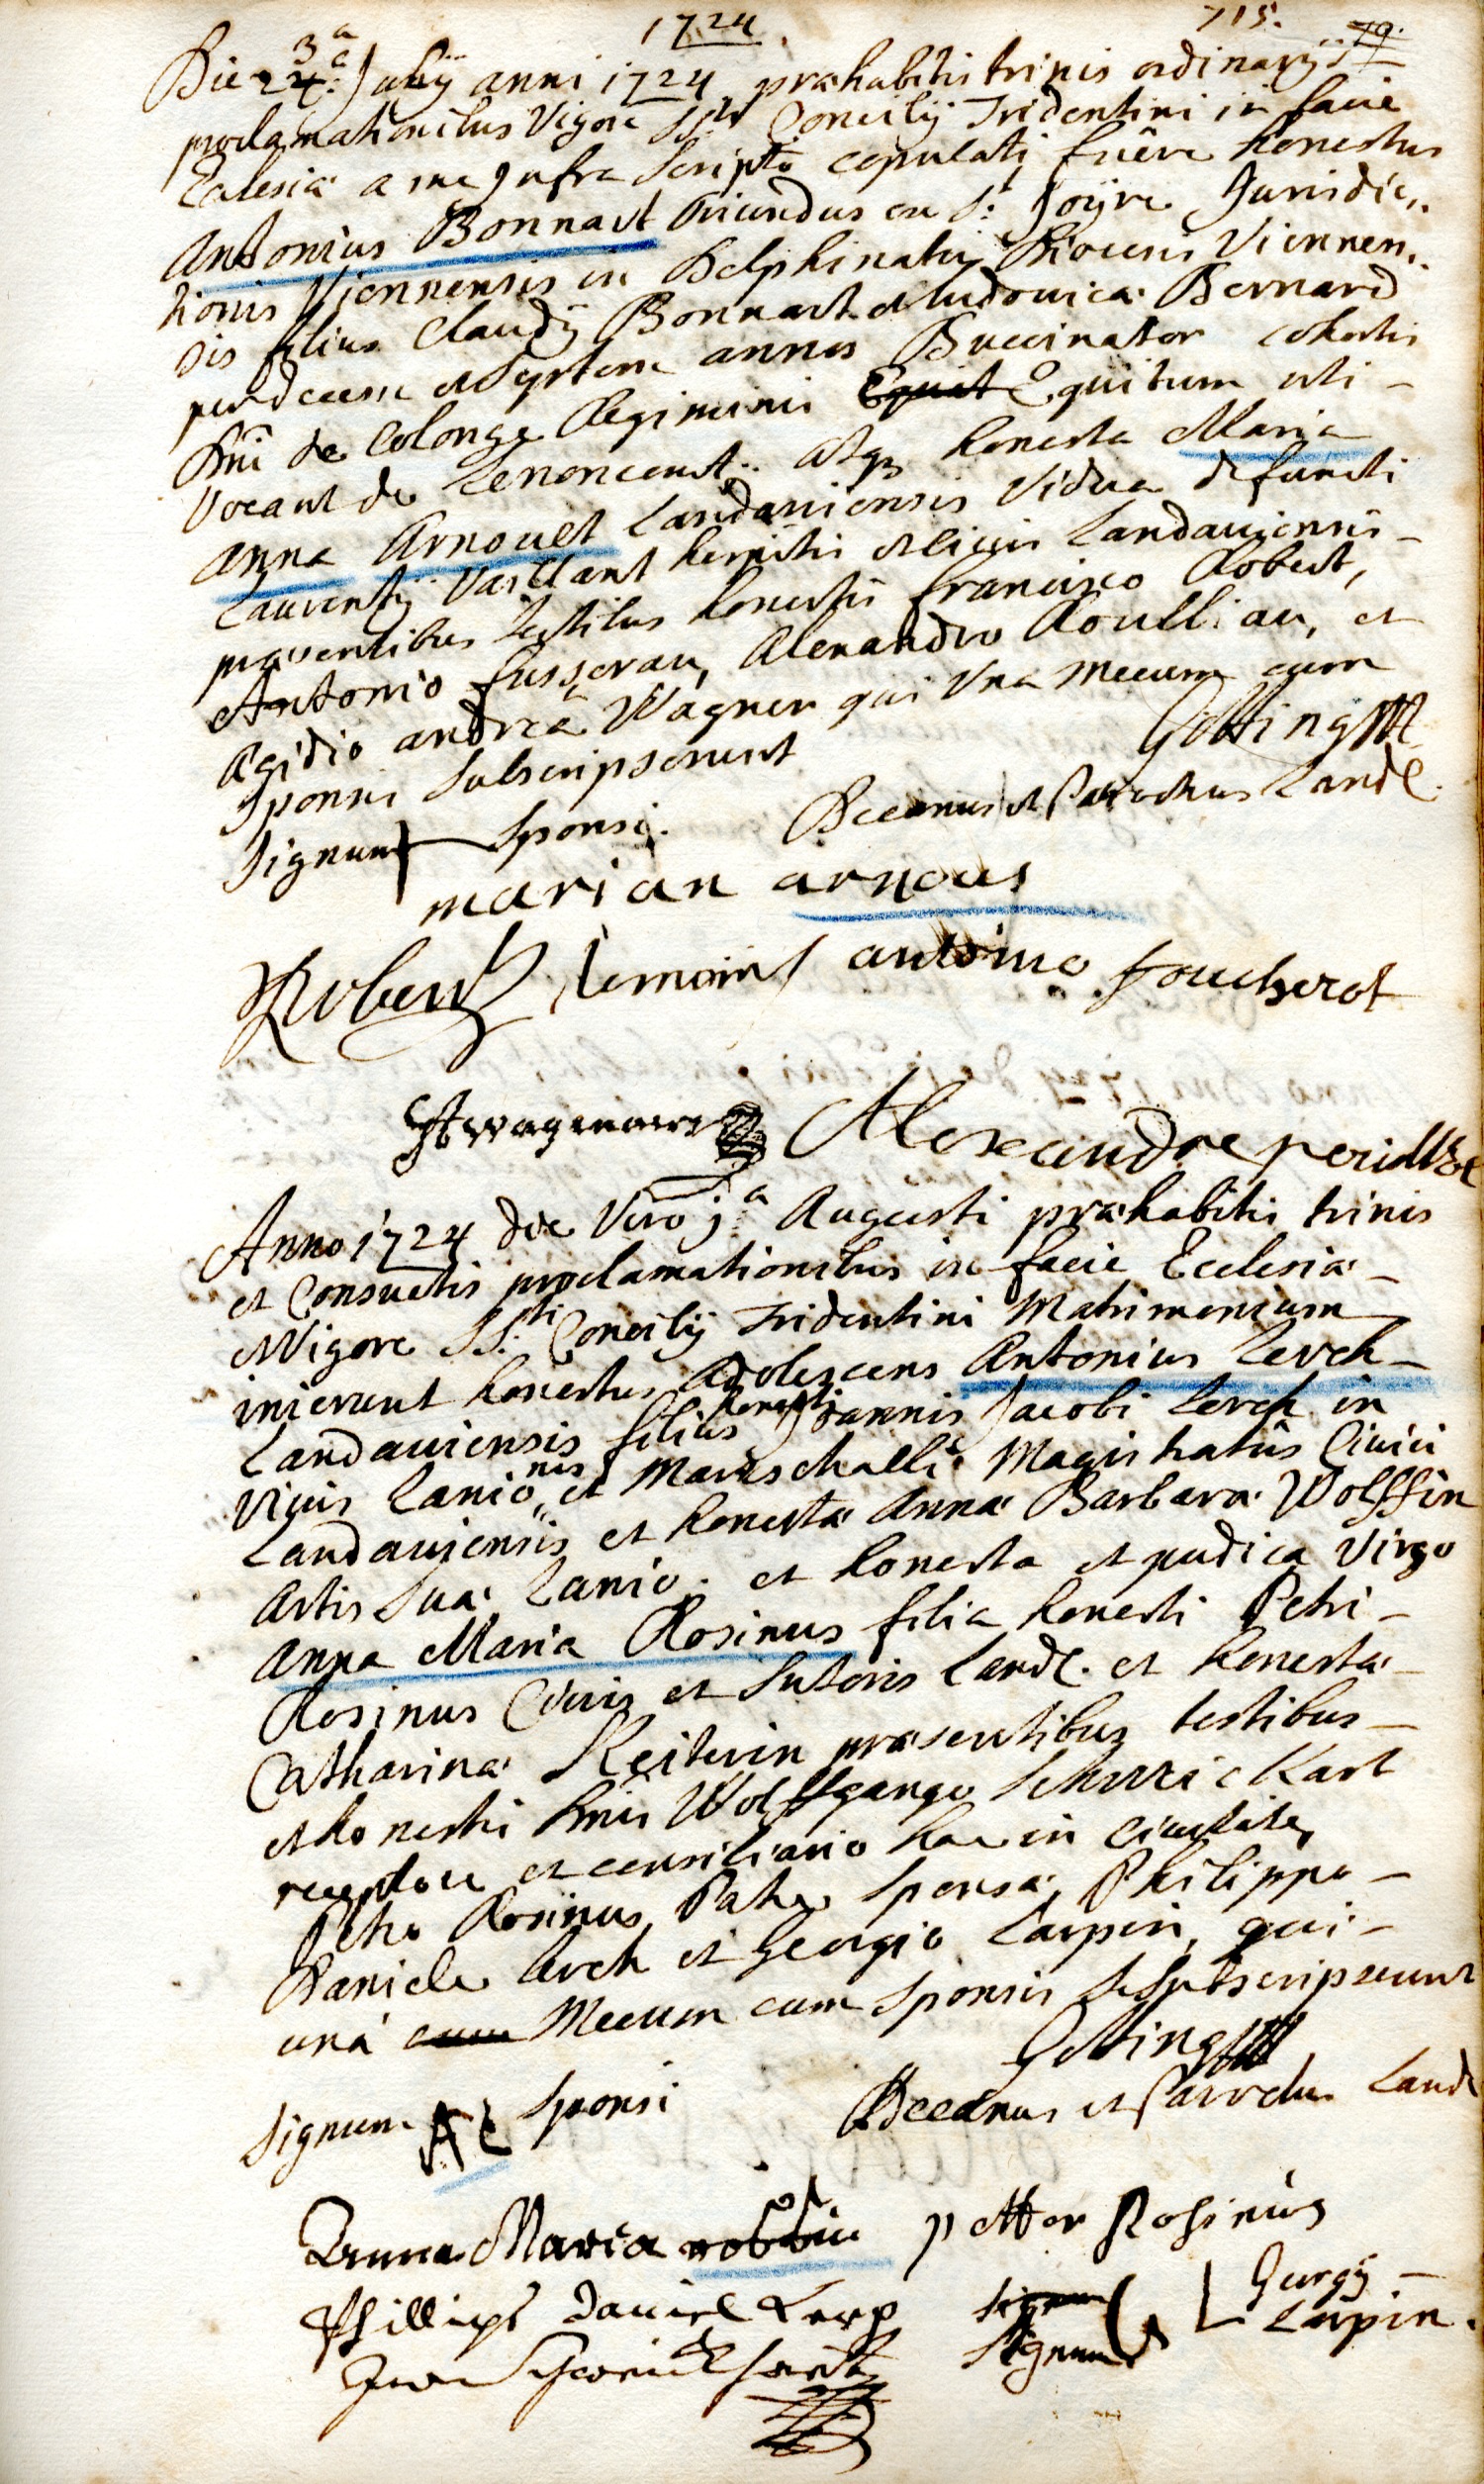 1724. 715. 79.
Die 23a Julÿ anni 1724 præhabitis trinis ordinarÿs
proclamationibus Vigore SS.ti Concilÿ Tridentini in facie
Eclesiæ a me Infra Scripto copulati fuêre honestus
Antonius Bonnart oriundus ex St Joÿre Jurisdic,,
tionis Viennensis in Delphinatu Diocesis Viennen,,
sis filius Claudÿ Bonnart et Ludovicæ Bernard
per decem et Septem annos Buccinator cohortis
Dni de Colonge Regiminis Equit Equitum uti -
vocant de Lenoncourt.. atqz honesta Maria
Anna Arnoult Landaviensis Vidua defuncti
Laurentÿ Vaillant civis Landaviensis -
præsentibus testibus honestis francisco Robert,
Antonio fusserau, Alexandro Roulliau, et
Ægidio andrea Wagner qui Una Mecum cum
Sponsis Subscripserunt Götting
Signum Sponsi. Decanus et Parochus Land.
marian arnous
Robert temoint antoine foucherot
Wagenaer Alexandre
Anno 1724 die Vero ja Augusti præhabitis trinis
et Consuetis proclamationibus in facie Ecclesiæ -
et Vigore SS.ti Concilÿ Tridentini Matrimonium
inierunt honestus Adolescens Antonius Lerch -
Landaviensis filius honesti Joannis Jacobi Lerch in
vivis Lanionis et Mareschalli Magistratûs Civici
Landaviensis et honestæ Annæ Barbaræ Wolffin
Artis Suæ Lanio. et honesta et pudica Virgo
Anna Maria Rosinus filia honesti Petri -
Rosinus Civis et Sutoris Land. et honestæ -
Catharinæ Reiterin præsentibus testibus -
et honestis Dnis Wolffgango Schwrickart
receptore et consiliario hac in civitate,
Petro Rosinus Patre Sponsæ, Philippo -
Daniele Lerch et Georgio Larpin, qui -
unà cum Mecum cum Sponsis Se Subscripserunt
Götting
Signum AL Sponsi Decanus et Parochus Land
Anna Maria petter Rosinus
Phillips Daniel Lerg Signum Gurgÿ -
Signum Larpin.